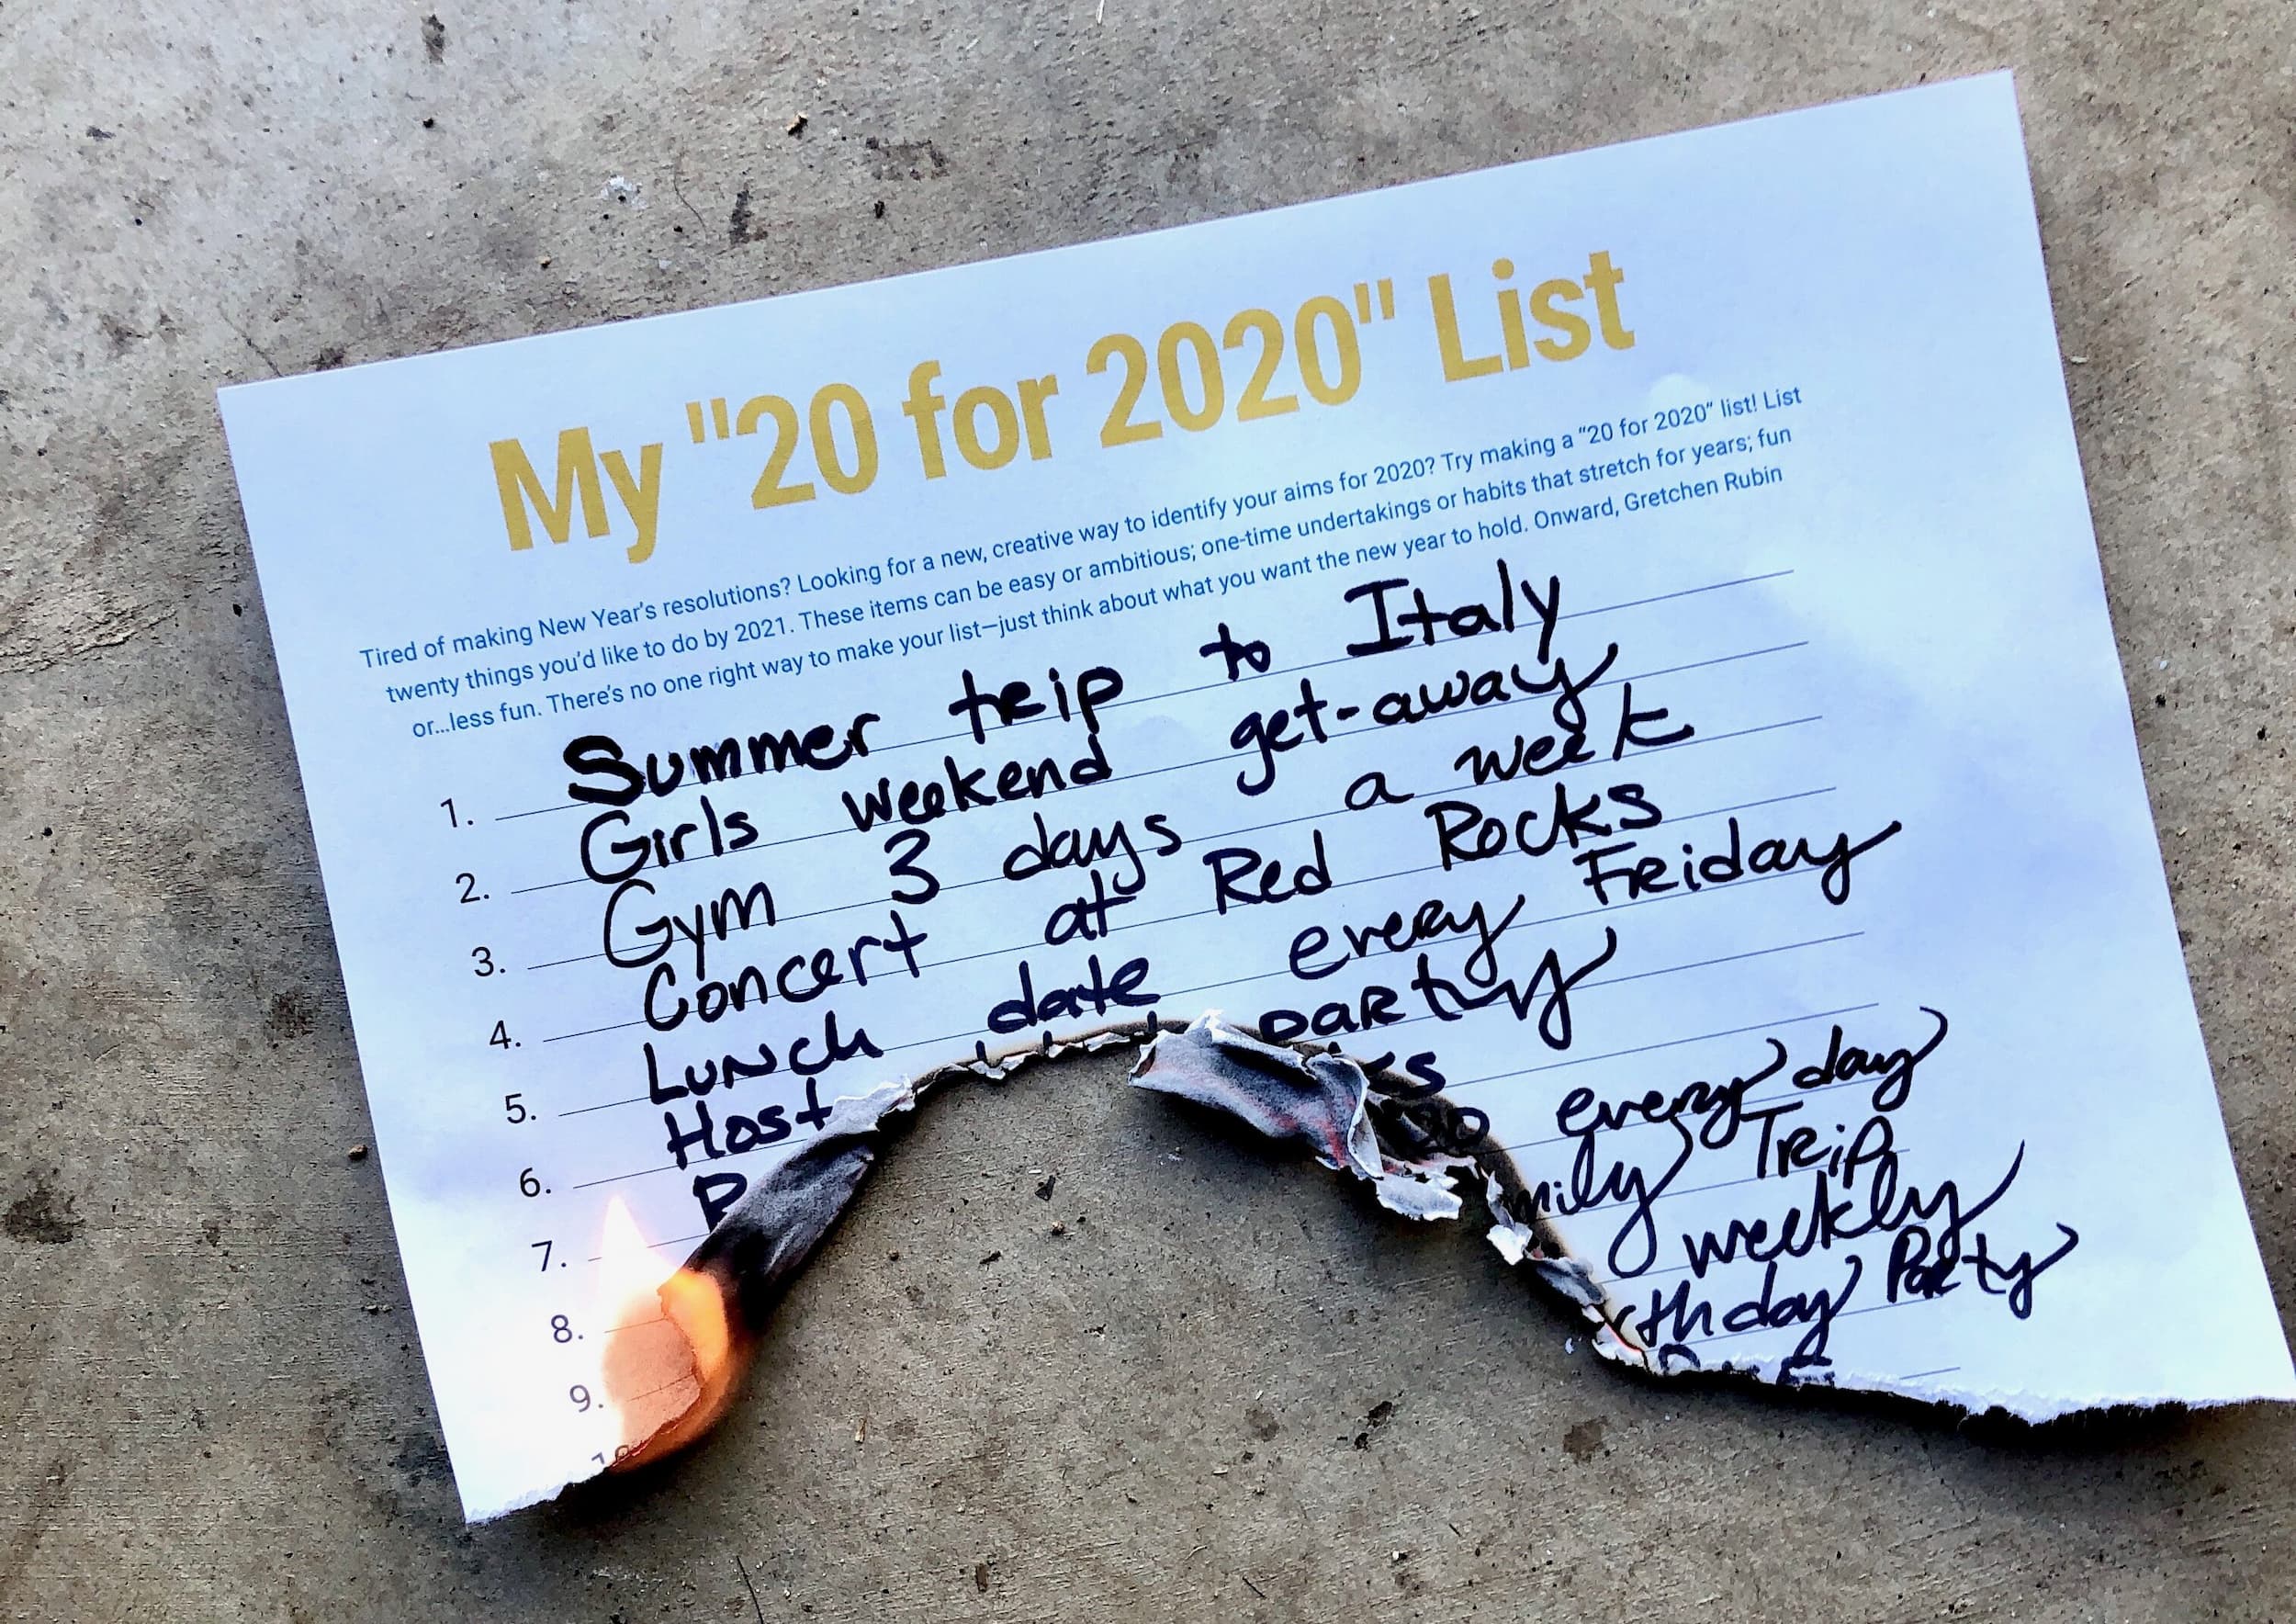 My "20 for 2020" List
Tired of making New Year's resolutions? Looking for a new, creative way to identify your aims for 2020? Try making a "20 for 2020" list! List
twenty things you'd like to do by 2021. These items can be easy or ambitious; one-time undertakings or habits that stretch for years; fun
or...less fun. There's no one right way to make your list—just think about what you want the new year to hold. Onward, Gretchen Rubin
1. Summer trip to Italy
2. Girls weekend get-away
3. Gym 3 days a week
4. Concert at Red Rocks
5. Lunch date every Friday
6. Host party
7.
8. every day
9. Trip
weekly
Party